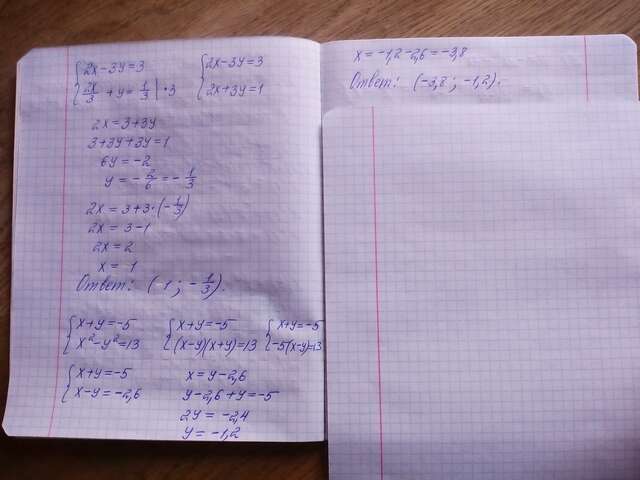 {2x-3y=3 {2x-3y=3
{2x/3 + y = 1/3 | ·3 {2x+3y=1
2x = 3+3y
3+3y+3y=1
6y = -2
y = - 2/6 = - 1/3
2x = 3+3·(-1/3)
2x = 3-1
2x = 2
x = 1
Ответ: (1; -1/3).
{x+y=-5 {x+y=-5 {x+y=-5
{x²-y²=13 {(x-y)(x+y)=13 {-5(x-y)=13
{x+y=-5 x = y-2,6
{x-y=-2,6 y-2,6+y=-5
2y = -2,4
y = -1,2
x = -1,2-2,6=-3,8
Ответ: (-3,8; -1,2).